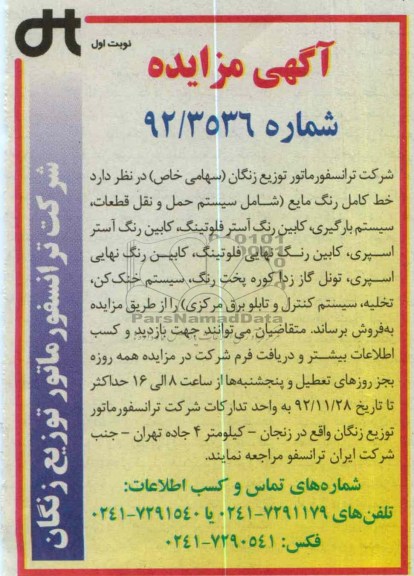 نوبت اول
آگهی مزایده
شماره ۹۲/۳۵۳۶
شرکت ترانسفورماتور توزیع زنگان (سهامی خاص) در نظر دارد
خط کامل رنگ مایع (شامل سیستم حمل و نقل قطعات،
سیستم بارگیری، کابین رنگ آستر فلوتینگ، کابین رنگ آستر
اسپری، کابین رنگ نهایی فلوتینگ، کابین رنگ نهایی
اسپری، تونل گاز زدا کوره پخت رنگ، سیستم خنک‌کن،
تخلیه، سیستم کنترل و تابلو برق مرکزی) را از طریق مزایده
ParsNamadData
به‌فروش برساند. متقاضیان می‌توانند جهت بازدید و کسب
اطلاعات بیشتر و دریافت فرم شرکت در مزایده همه روزه
بجز روزهای تعطیل و پنجشنبه‌ها از ساعت ۸ الی ۱۶ حداکثر
تا تاریخ ۹۲/۱۱/۲۸ به واحد تدارکات شرکت ترانسفورماتور
توزیع زنگان واقع در زنجان – کیلومتر ۴ جاده تهران – جنب
شرکت ایران ترانسفو مراجعه نمایند.
شماره‌های تماس و کسب اطلاعات:
تلفن‌های ۷۲۹۱۱۷۹-۰۲۴۱ یا ۷۲۹۱۵۴۰-۰۲۴۱
فکس: ۷۲۹۰۵۴۱-۰۲۴۱
شرکت ترانسفورماتور توزیع زنگان